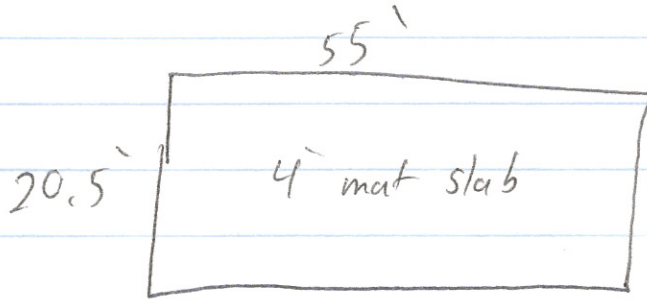 55`
20.5`
4` mat slab